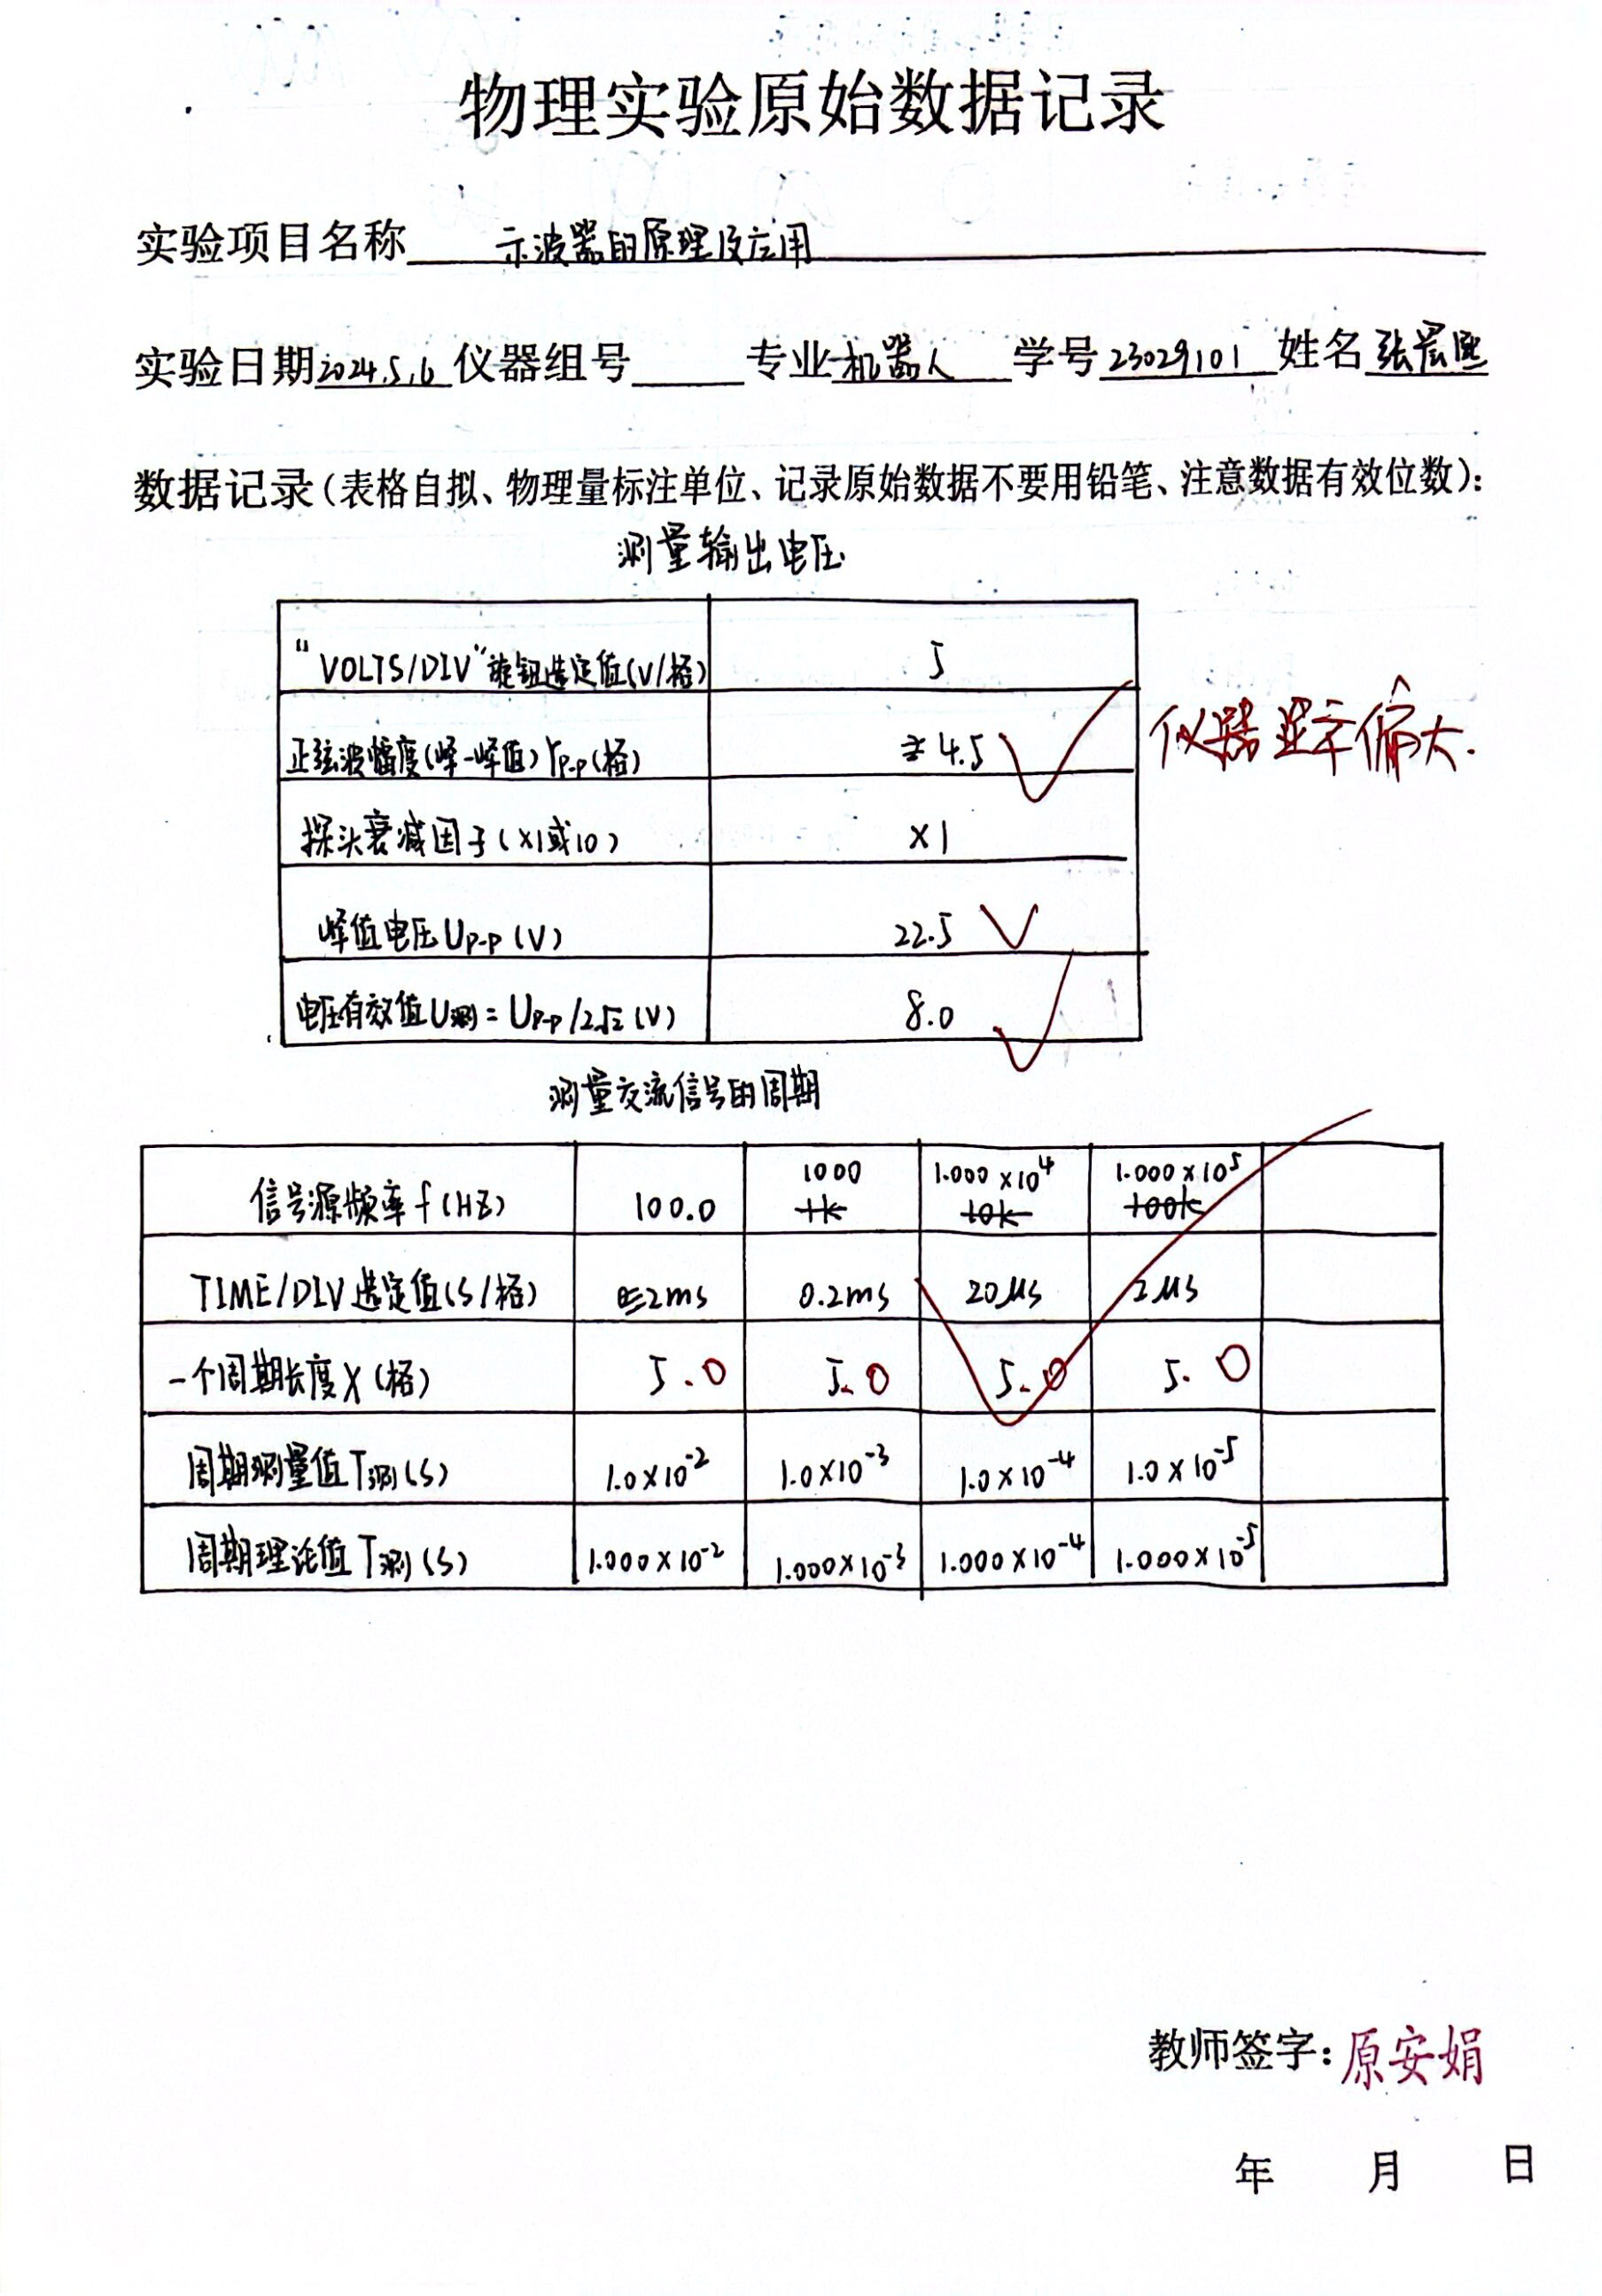 物理实验原始数据记录
实验项目名称 示波器的原理及应用
实验日期 2024.5.6 仪器组号 专业 机器人 学号 23029101 姓名 张宸熙
数据记录(表格自拟、物理量标注单位、记录原始数据不要用铅笔、注意数据有效位数):
测量输出电压
"VOLTS/DIV"旋钮选定值(V/格) 5
正弦波幅度(峰-峰值)Yp-p(格) 4.5
仪器显示偏大.
探头衰减因子(×1或10) ×1
峰值电压Up-p(V) 22.5
电压有效值U测=Up-p/2√2(V) 8.0
测量交流信号的周期
信号源频率f(HZ) 100.0 1000 1k 1.000×10⁴ 10k 1.000×10⁵ 100k
TIME/DIV选定值(S/格) 2ms 0.2ms 20μs 2μs
一个周期长度X(格) 5.0 5.0 5.0 5.0
周期测量值T测(S) 1.0×10⁻² 1.0×10⁻³ 1.0×10⁻⁴ 1.0×10⁻⁵
周期理论值T测(S) 1.000×10⁻² 1.000×10⁻³ 1.000×10⁻⁴ 1.000×10⁻⁵
教师签字:原安娟
年 月 日